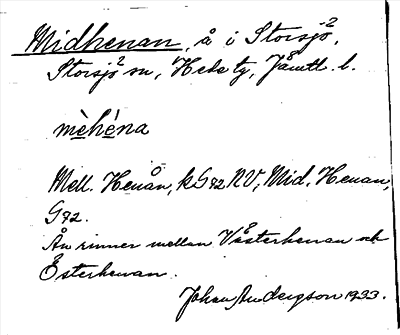 Midhenan, å i Storsjö 2,
Storsjö 2 sn, Hede tg, Jämtl. l.
mèhéna
Mell. Henån, k G 92 NV; Mid. Henan,
G 92.
Ån rinner mellan Västerhenan och
Österhenan.
Johan Andersson 1933.